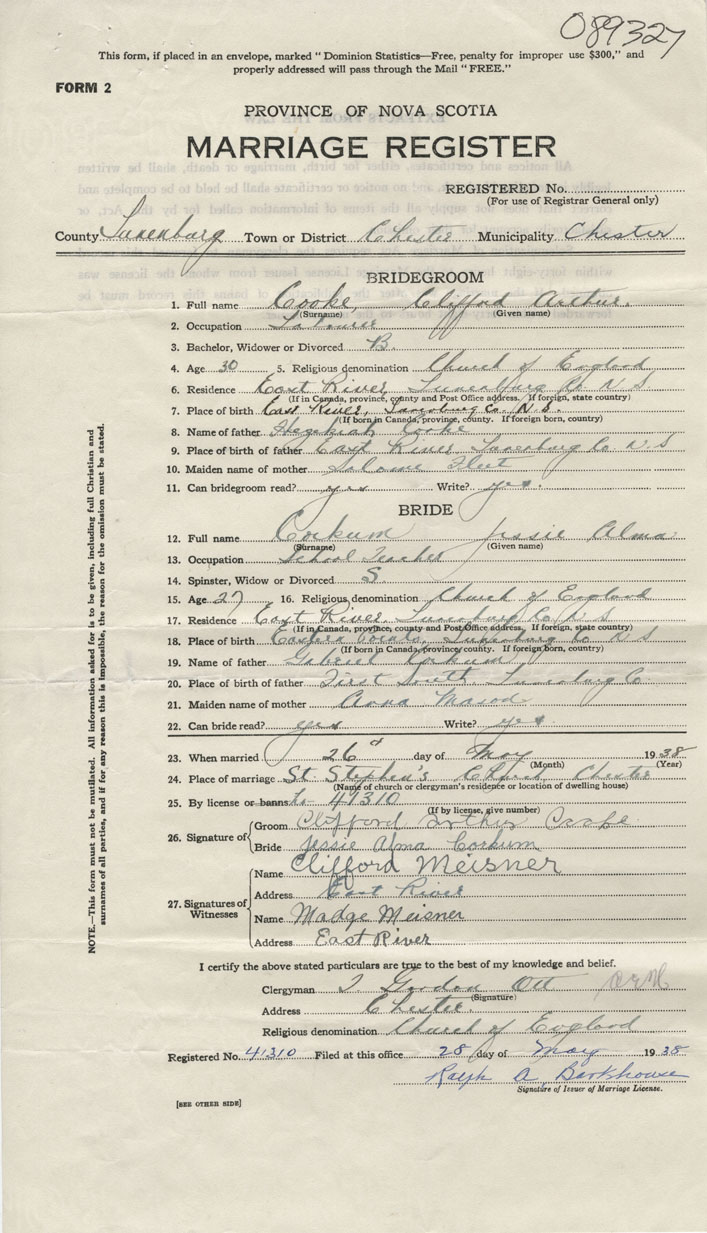 089327
This form, if placed in an envelope, marked "Dominion Statistics—Free, penalty for improper use $300," and
properly addressed will pass through the Mail "FREE."
FORM 2
PROVINCE OF NOVA SCOTIA
MARRIAGE REGISTER
REGISTERED No.
(For use of Registrar General only)
County Lunenburg Town or District Chester Municipality Chester
BRIDEGROOM
1. Full name Cooke, Clifford Arthur.
(Surname) (Given name)
2. Occupation Labourer
3. Bachelor, Widower or Divorced B.
4. Age 30 5. Religious denomination Church of England
6. Residence East River, Lunenburg Co N S
(If in Canada, province, county and Post Office address. If foreign, state country)
7. Place of birth East River, Lunenburg Co. N.S.
(If born in Canada, province, county. If foreign born, country)
8. Name of father Hezekiah Cooke
9. Place of birth of father East River Lunenburg Co N.S
10. Maiden name of mother Salome Fleet
11. Can bridegroom read? yes Write? yes.
BRIDE
12. Full name Corkum Jessie Alma
(Surname) (Given name)
13. Occupation School Teacher
14. Spinster, Widow or Divorced S
15. Age 27 16. Religious denomination Church of England
17. Residence East River, Lunenburg Co N S
(If in Canada, province, county and Post Office address. If foreign, state country)
18. Place of birth Eastern Points, Lunenburg Co N S
(If born in Canada, province, county. If foreign born, country)
19. Name of father Gabriel Corkum
20. Place of birth of father First South Lunenburg Co
21. Maiden name of mother Anna
22. Can bride read? yes Write? yes
23. When married 26 day of May 1938
(Month) (Year)
24. Place of marriage St. Stephen's Church, Chester
(Name of church or clergyman's residence or location of dwelling house)
25. By license or banns L. 41310
(If by license, give number)
26. Signature of Groom Clifford Arthur Cooke
Bride Jessie Alma Corkum
27. Signatures of Witnesses Name Clifford Meisner
Address East River
Name Madge Meisner
Address East River
I certify the above stated particulars are true to the best of my knowledge and belief.
Clergyman T Gordon Ott
(Signature)
Address Chester.
Religious denomination Church of England
Registered No. 41310 Filed at this office 28 day of May 1938
Ralph A. Barkhouse
Signature of Issuer of Marriage License.
[SEE OTHER SIDE]
NOTE.—This form must not be mutilated. All information asked for is to be given, including full Christian and
surnames of all parties, and if for any reason this is impossible, the reason for the omission must be stated.